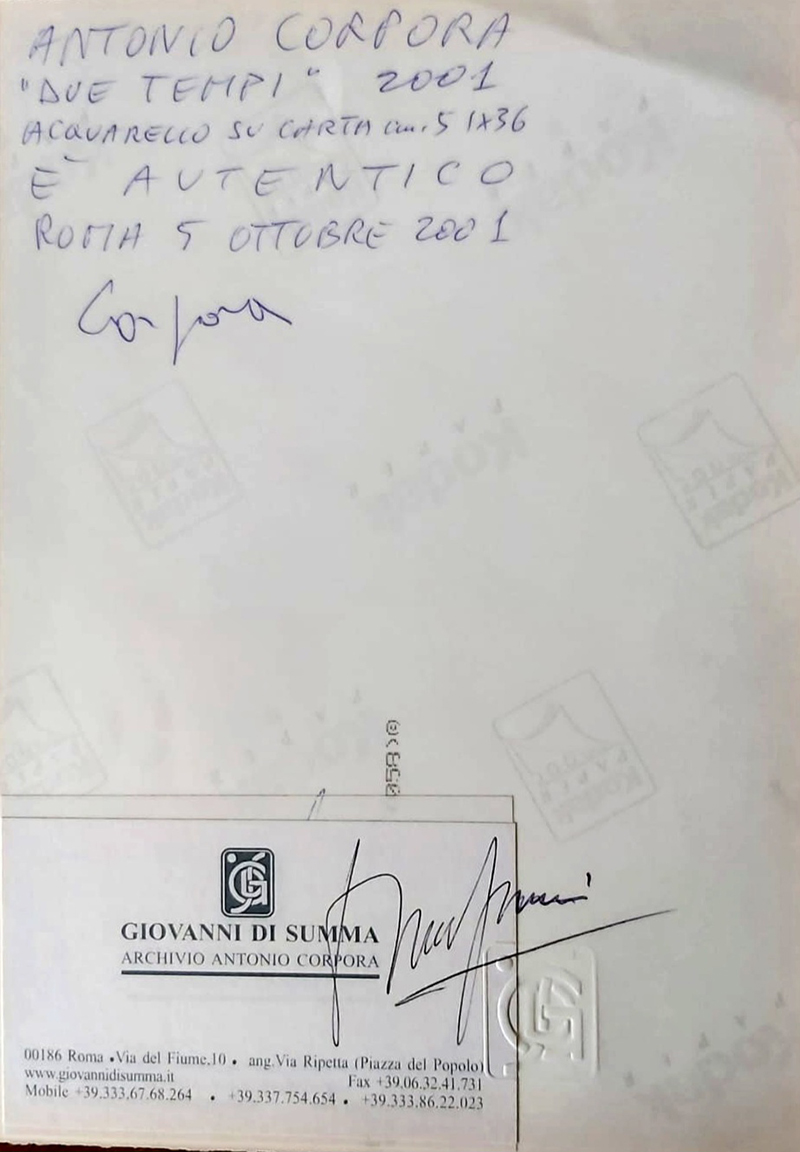 ANTONIO CORPORA
"DUE TEMPI" 2001
ACQUARELLO SU CARTA cm. 51x36
E' AUTENTICO
ROMA 5 OTTOBRE 2001
Corpora
Kodak
058>@
GIOVANNI DI SUMMA
ARCHIVIO ANTONIO CORPORA
00186 Roma • Via del Fiume,10 • ang.Via Ripetta (Piazza del Popolo)
www.giovannidisumma.it Fax +39.06.32.41.731
Mobile +39.333.67.68.264 • +39.337.754.654 • +39.333.86.22.023